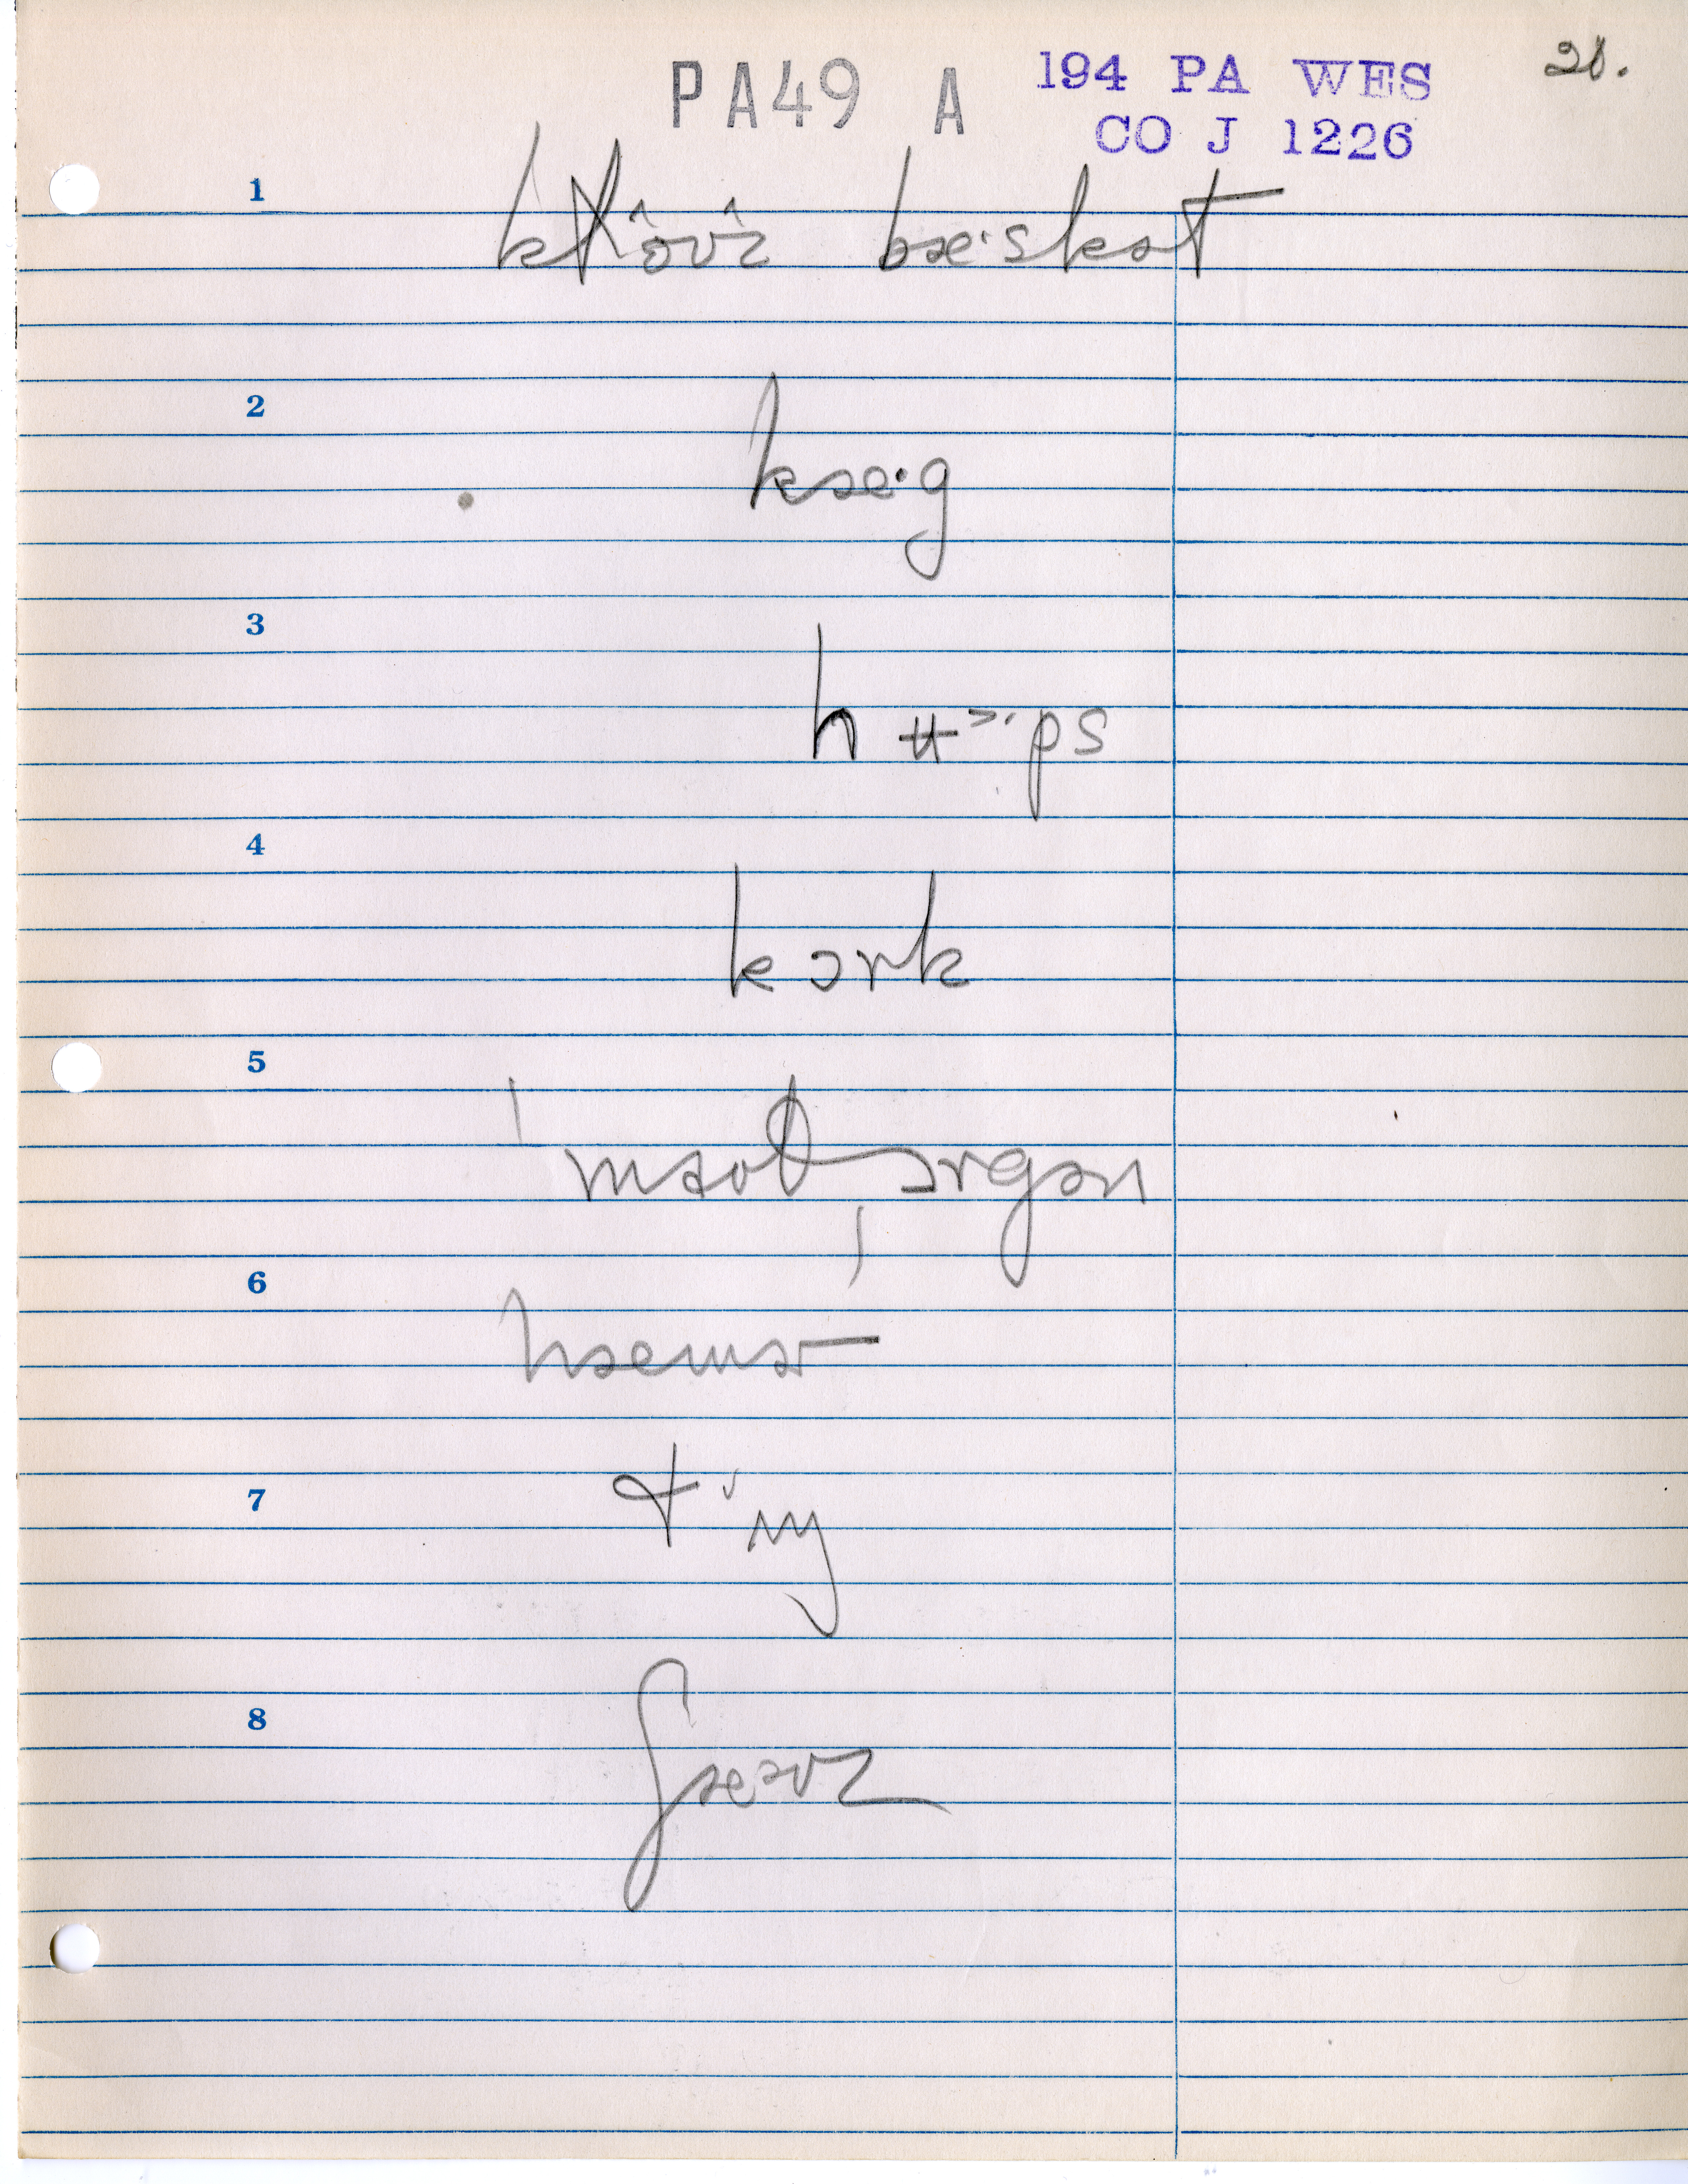 PA49 A 194 PA WES 28.
CO J 1226
1 klôʊz bæ·skət
2 kæ·g
3 hʉ˃·ps
4 kɔrk
5 ˈmaʊθˌɔrgən
6 hæmɚ
7 tʌŋ
8 ʃæəvz